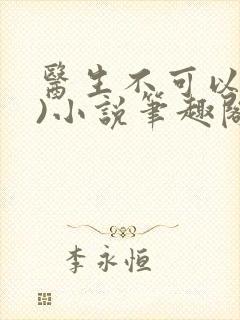 醫生不可以
)小說筆趣閣
李永恒